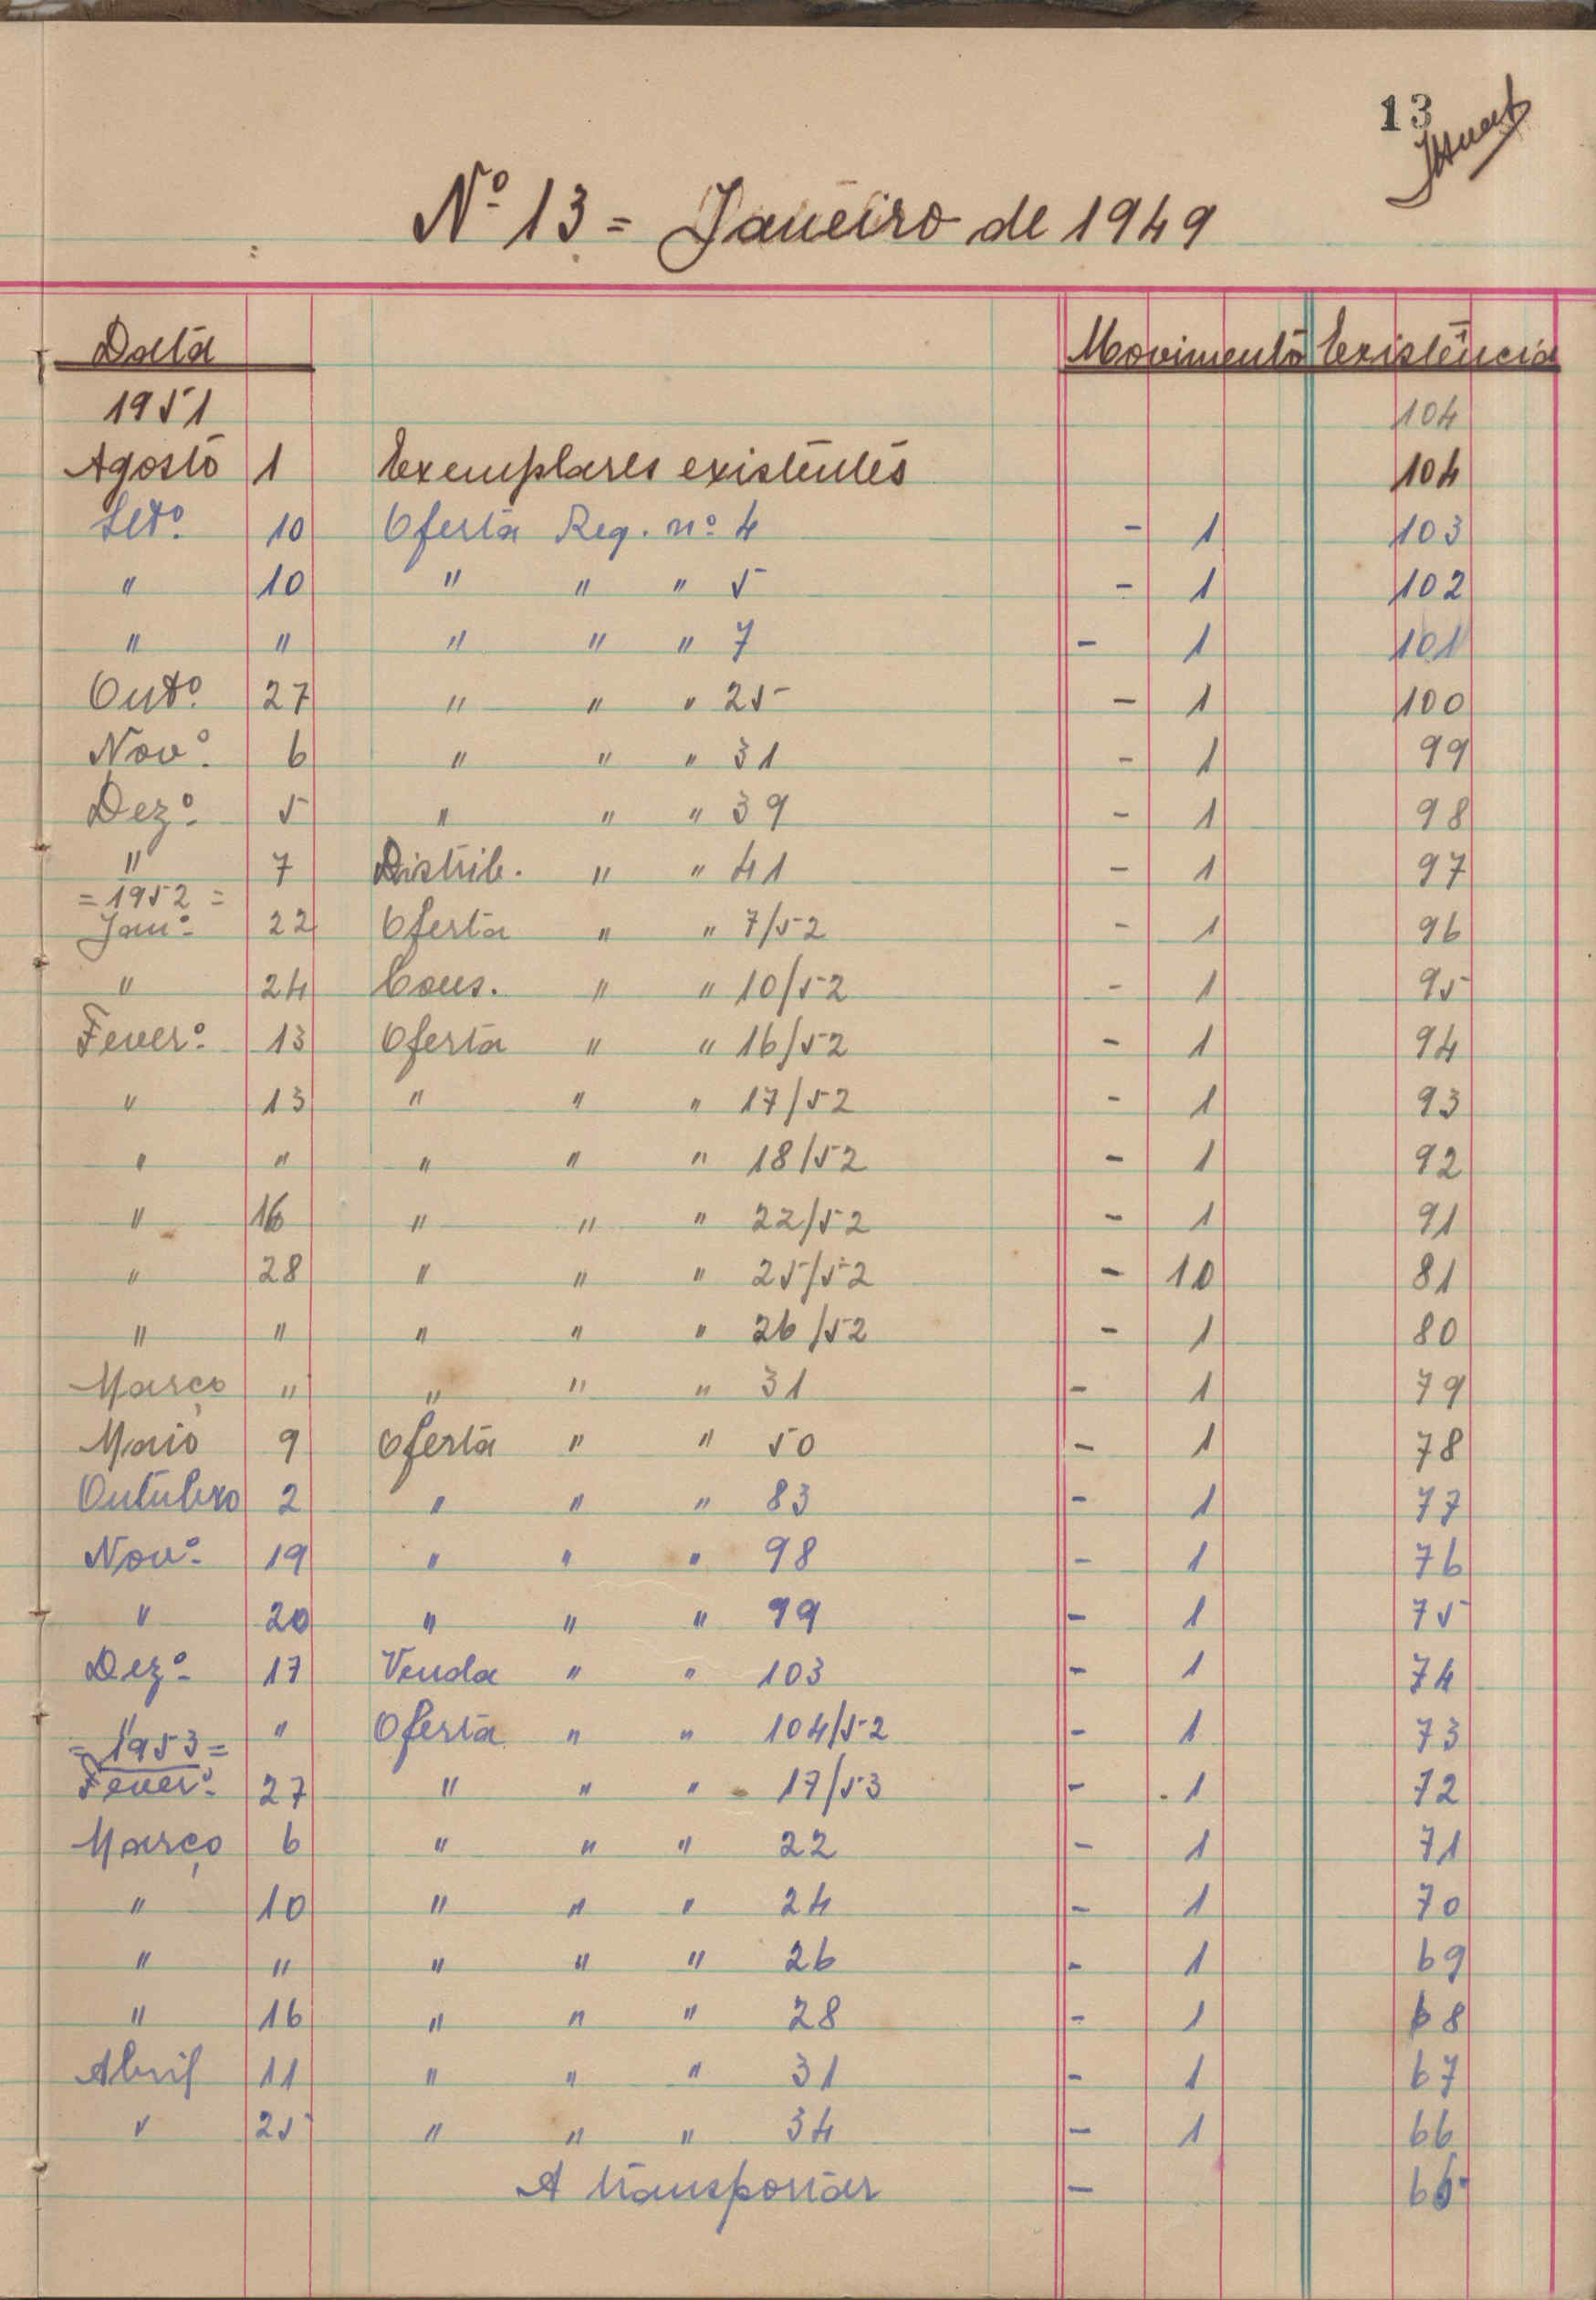 13
Nº 13 = Janeiro de 1949
Data Movimento Existência
1951 104
Agosto 1 Exemplares existentes 104
Setº. 10 Oferta Reg. nº 4 - 1 103
" 10 " " " 5 - 1 102
" " " " " 7 - 1 101
Outº. 27 " " " 25 - 1 100
Novº. 6 " " " 31 - 1 99
Dezº. 5 " " " 39 - 1 98
" 7 Distrib. " " 41 - 1 97
= 1952 =
Janº. 22 Oferta " " 7/52 - 1 96
" 24 Cons. " " 10/52 - 1 95
Feverº. 13 Oferta " " 16/52 - 1 94
" 13 " " " 17/52 - 1 93
" " " " " 18/52 - 1 92
" 16 " " " 22/52 - 1 91
" 28 " " " 25/52 - 10 81
" " " " " 26/52 - 1 80
Março " " " " 31 - 1 79
Maio 9 Oferta " " 50 - 1 78
Outubro 2 " " " 83 - 1 77
Novº. 19 " " " 98 - 1 76
" 20 " " " 99 - 1 75
Dezº. 17 Venda " " 103 - 1 74
" " Oferta " " 104/52 - 1 73
= 1953 =
Feverº. 27 " " " 17/53 - 1 72
Março 6 " " " 22 - 1 71
" 10 " " " 24 - 1 70
" " " " " 26 - 1 69
" 16 " " " 28 - 1 68
Abril 11 " " " 31 - 1 67
" 25 " " " 34 - 1 66
A transportar - 66